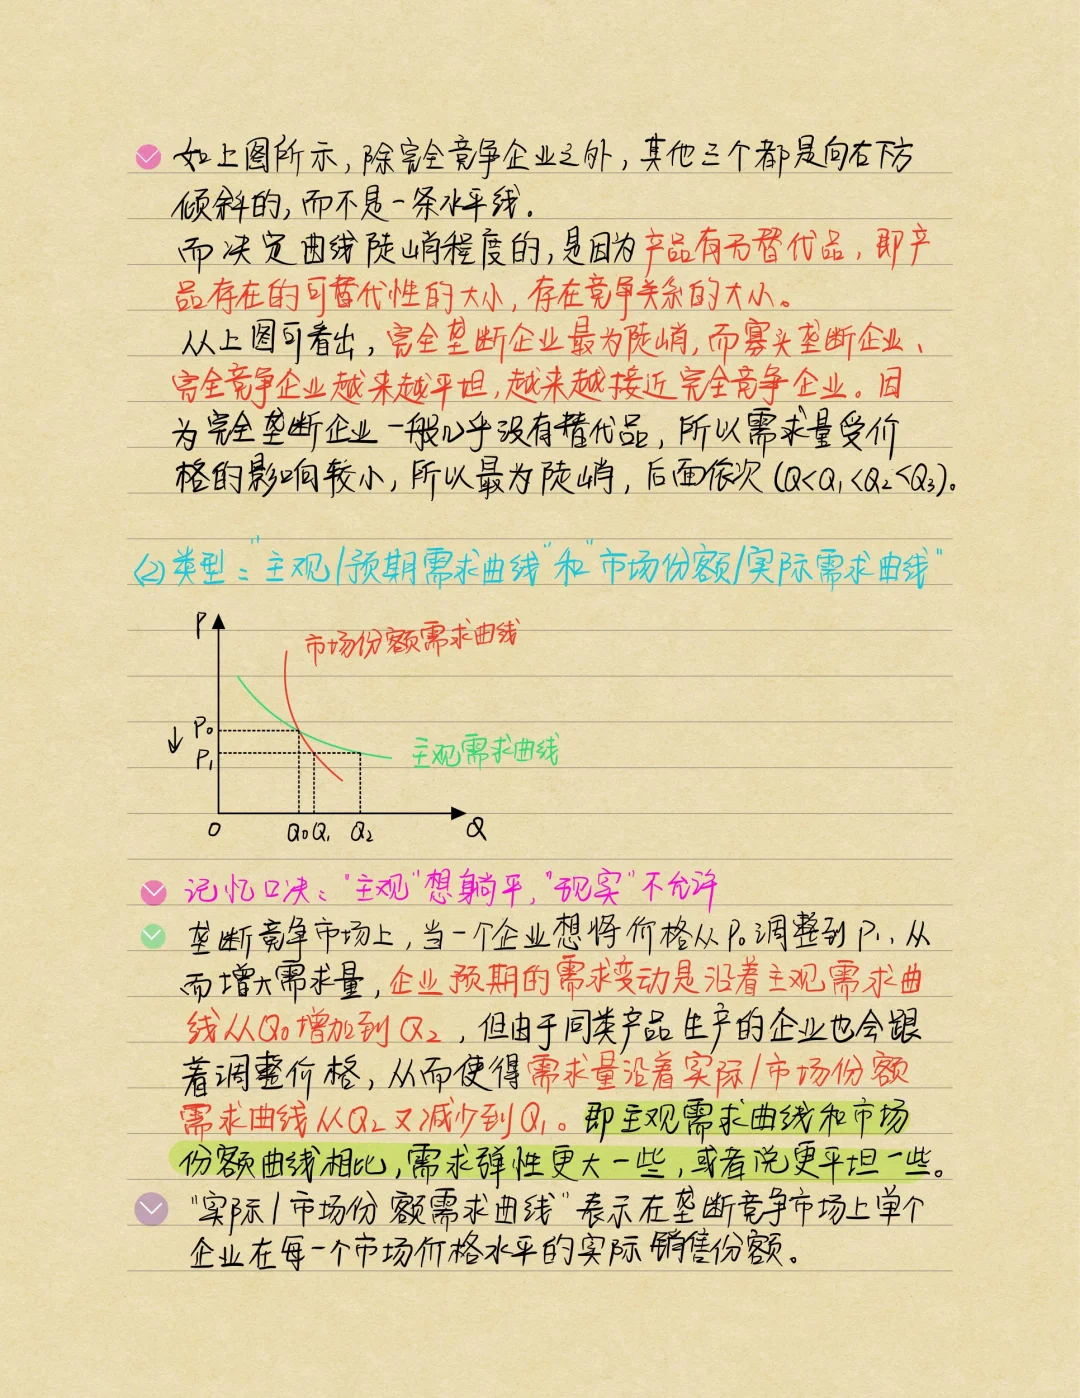 如上图所示,除完全竞争企业之外,其他三个都是向右下方
倾斜的,而不是一条水平线.
而决定曲线陡峭程度的,是因为产品有无替代品,即产
品存在的可替代性的大小,存在竞争关系的大小。
从上图可看出,完全垄断企业最为陡峭,而寡头垄断企业、
完全竞争企业越来越平坦,越来越接近完全竞争企业。因
为完全垄断企业一般几乎没有替代品,所以需求量受价
格的影响较小,所以最为陡峭,后面依次(Q<Q₁<Q₂<Q₃)。
(2)类型:"主观/预期需求曲线"和"市场份额/实际需求曲线"
P
市场份额需求曲线
P₀
↓
P₁
主观需求曲线
O Q₀ Q₁ Q₂ Q
记忆口决:"主观"想躺平,"现实"不允许
垄断竞争市场上,当一个企业想将价格从P₀调整到P₁,从
而增大需求量,企业预期的需求变动是沿着主观需求曲
线从Q₀增加到Q₂,但由于同类产品生产的企业也会跟
着调整价格,从而使得需求量沿着实际/市场份额
需求曲线从Q₂又减少到Q₁。即主观需求曲线和市场
份额曲线相比,需求弹性更大一些,或者说更平坦一些。
"实际/市场份额需求曲线"表示在垄断竞争市场上单个
企业在每一个市场价格水平的实际销售份额。